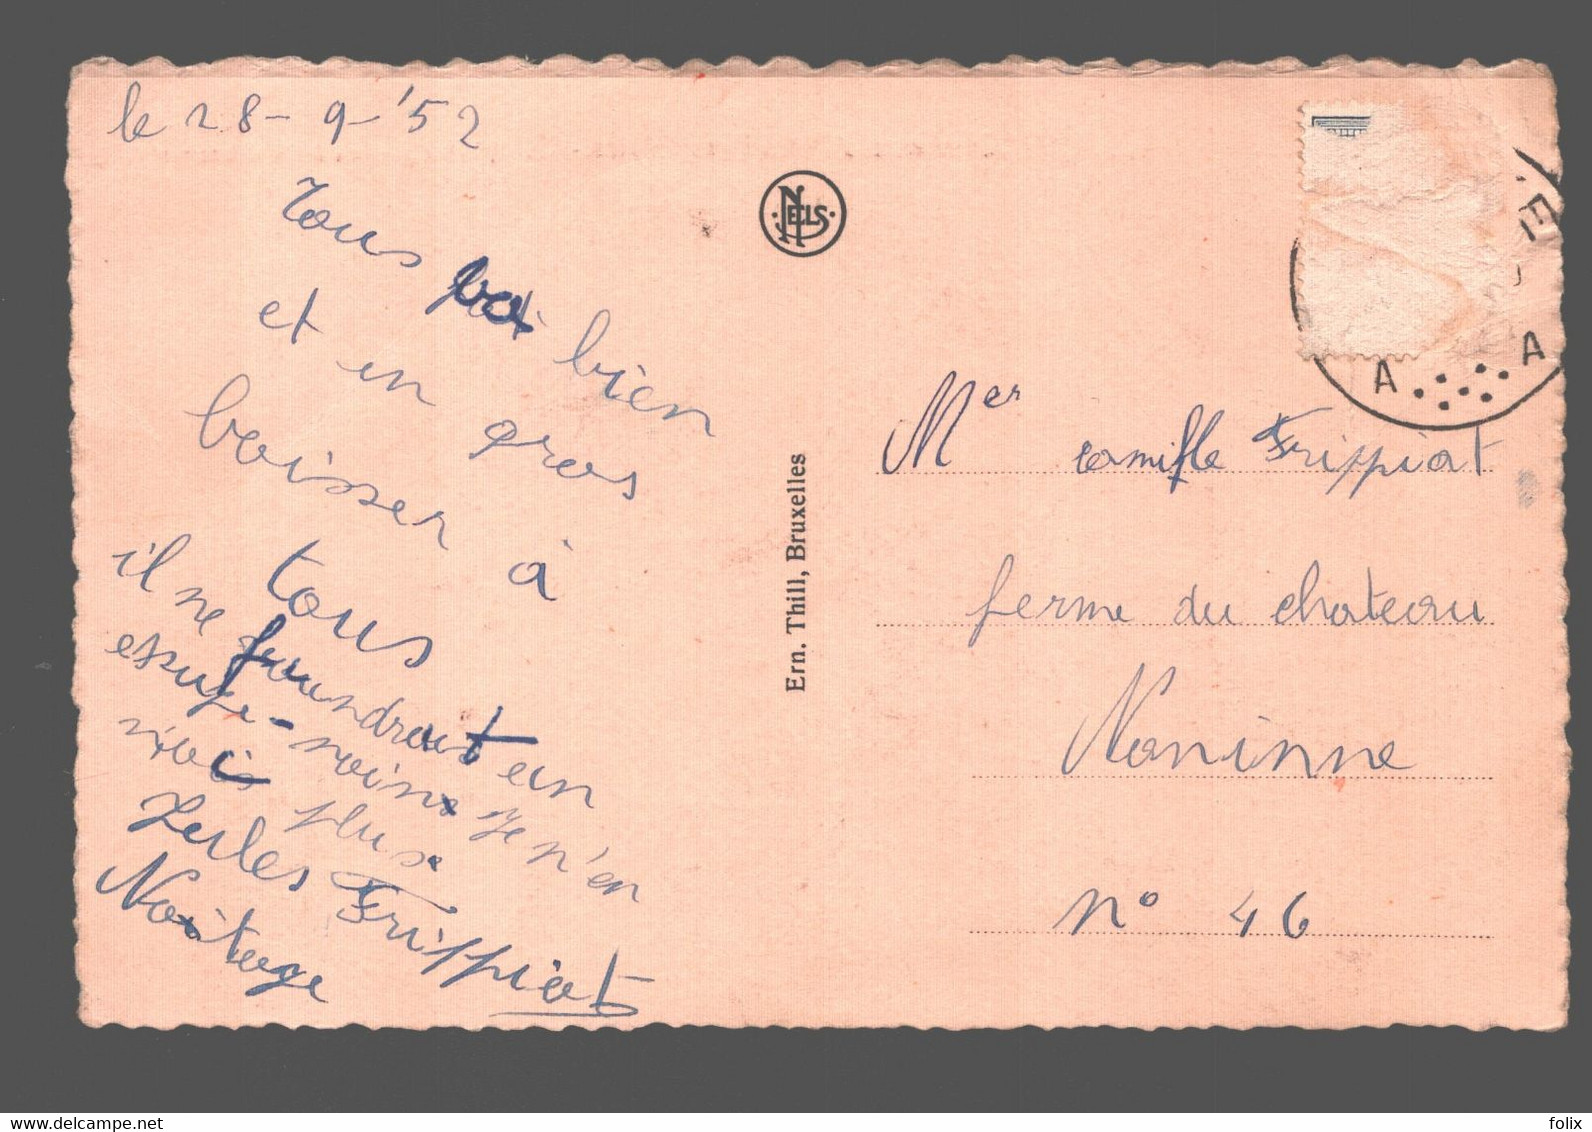 le 28-9-'52
Tous va bien
et en gros
baisser à
tous
il ne faundrait
essuye-moins je n'en
vois plus.
Jules Frippiat
NELS
Ern. Thill, Bruxelles
A A
Mer Camille Frippiat
ferme du chateau
Naninne
n° 46
www.delcampe.net
folix